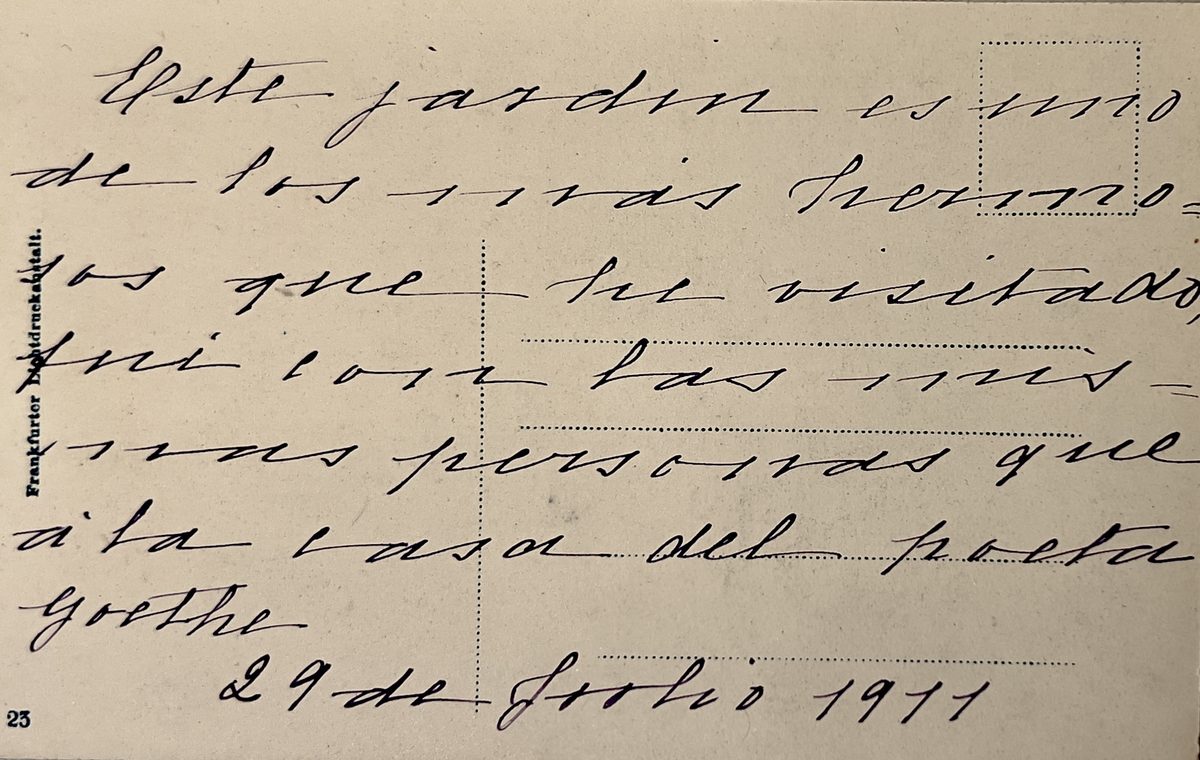 Este jardin es uno
de los más hermo=
sos que he visitado,
fui con las mis=
mas personas que
á la casa del poeta
Goethe
29 de Julio 1911
Frankfurter Lichtdruckanstalt.
23